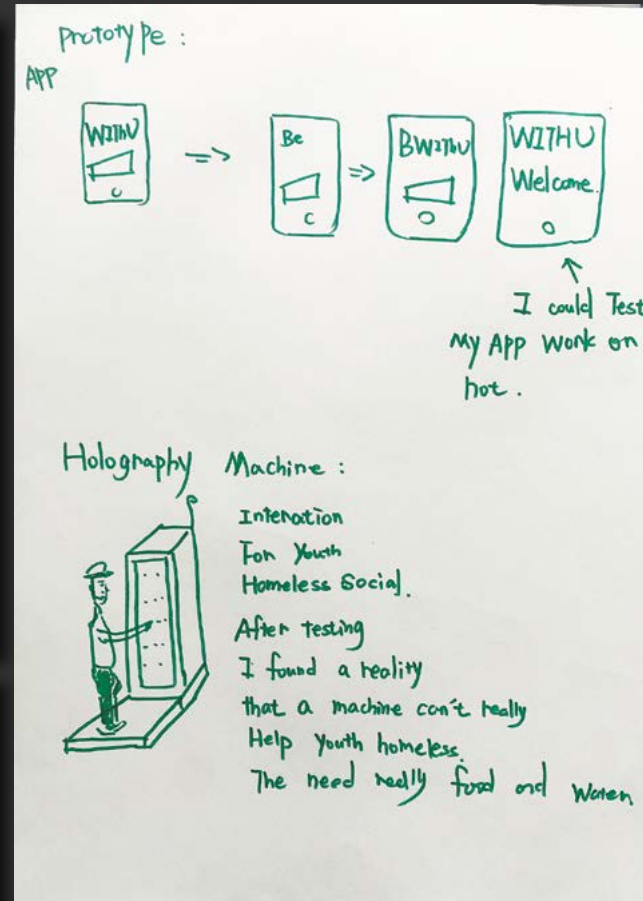 Prototype :
APP
WIThU
Be
BWIThU
WITHU
Welcome.
I could Test
My APP Work on
hot .
Holography Machine :
Interation
For Youth
Homeless Social.
After testing
I found a reality
that a machine can't really
Help Youth homeless.
The need really food and Water